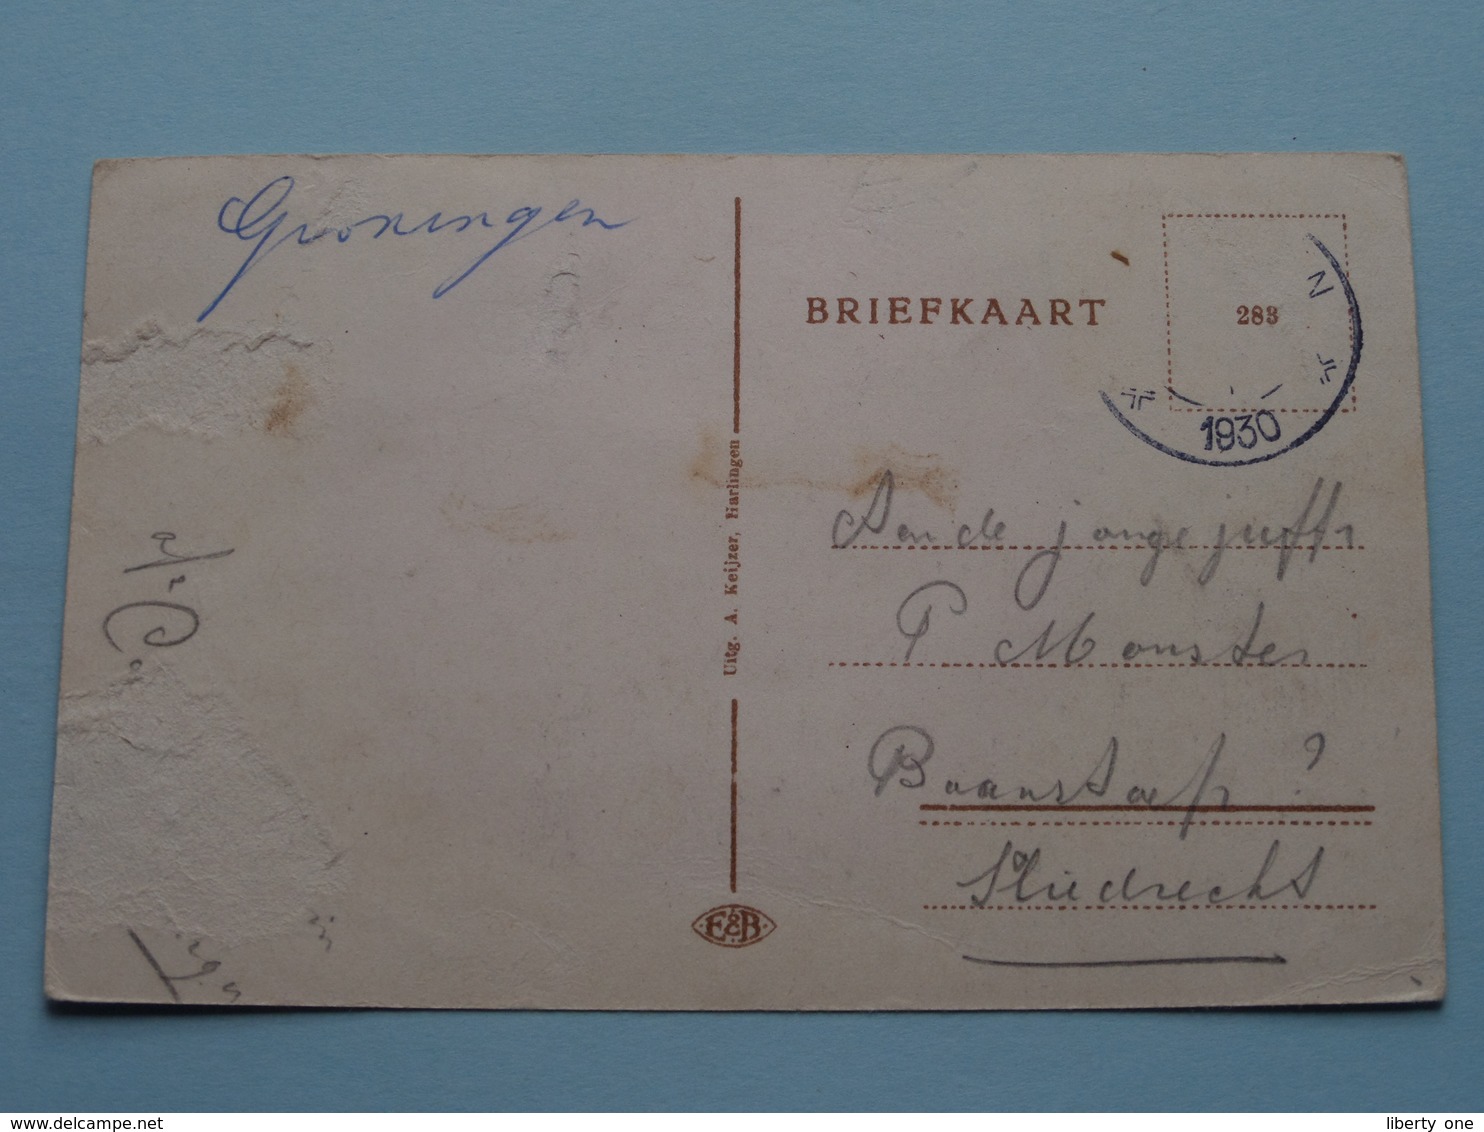 Groningen
BRIEFKAART
283
N
1930
Aan de jonge juffr
P Monster
Baanstoep ?
Sliedrecht
Uitg. A. Keijzer, Harlingen
E&B
www.delcampe.net
liberty one